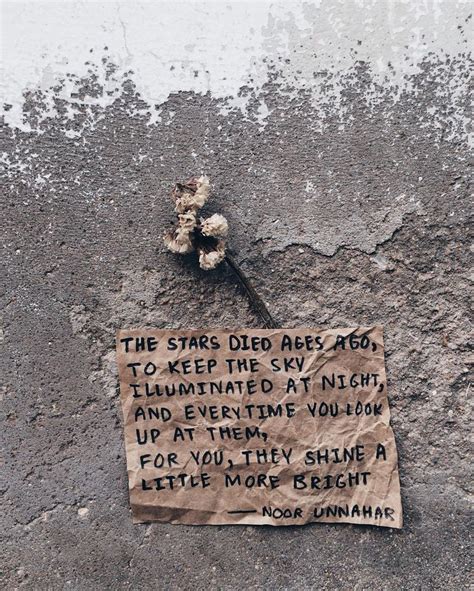 THE STARS DIED AGES AGO,
TO KEEP THE SKY
ILLUMINATED AT NIGHT,
AND EVERYTIME YOU LOOK
UP AT THEM,
FOR YOU, THEY SHINE A
LITTLE MORE BRIGHT
— NOOR UNNAHAR